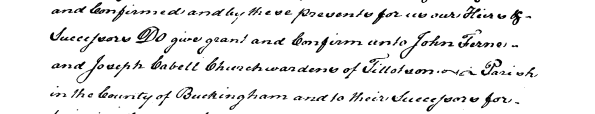 and Confirmed and by these presents for us our Heirs &
Successors Do give grant and Confirm unto John Ferne
and Joseph Cabell Churchwardens of Tillotson Parish
in the County of Buckingham and to their Successors for